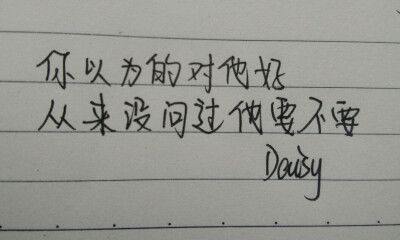 你以为的对他好
从来没问过他要不要
Daisy